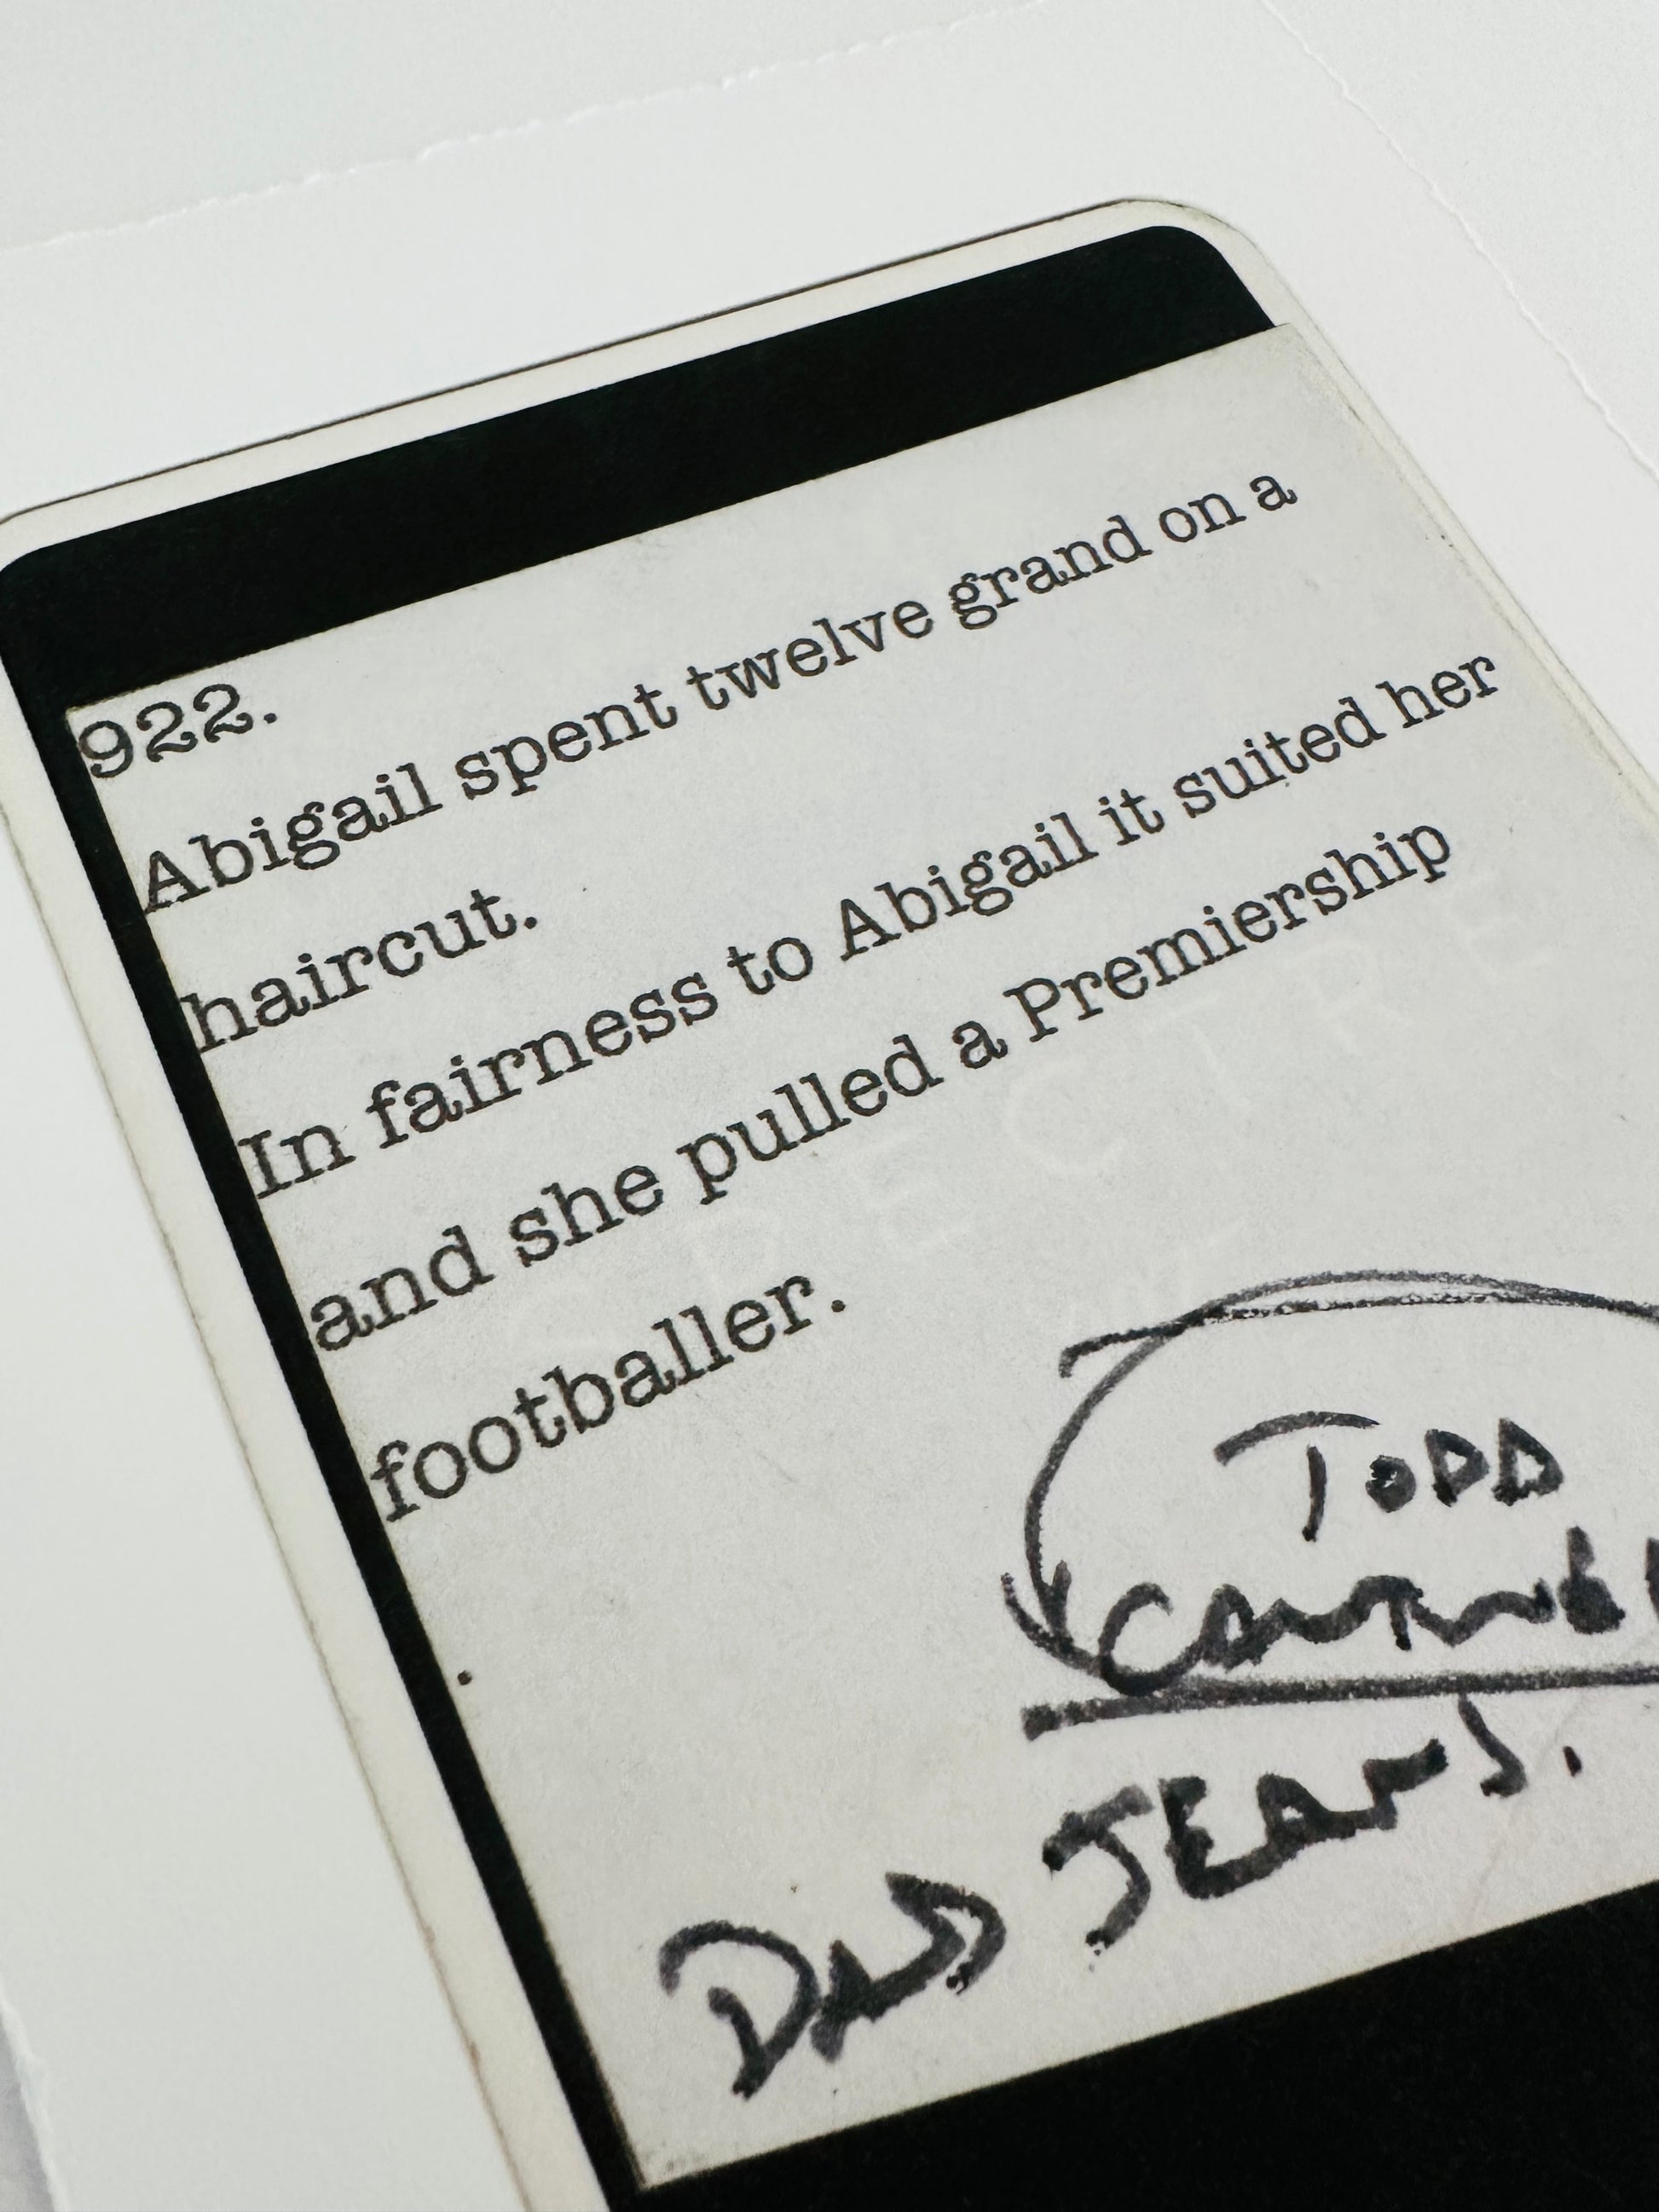 922.
Abigail spent twelve grand on a
haircut.
In fairness to Abigail it suited her
and she pulled a Premiership
footballer.
TODD
DAD JEANS.